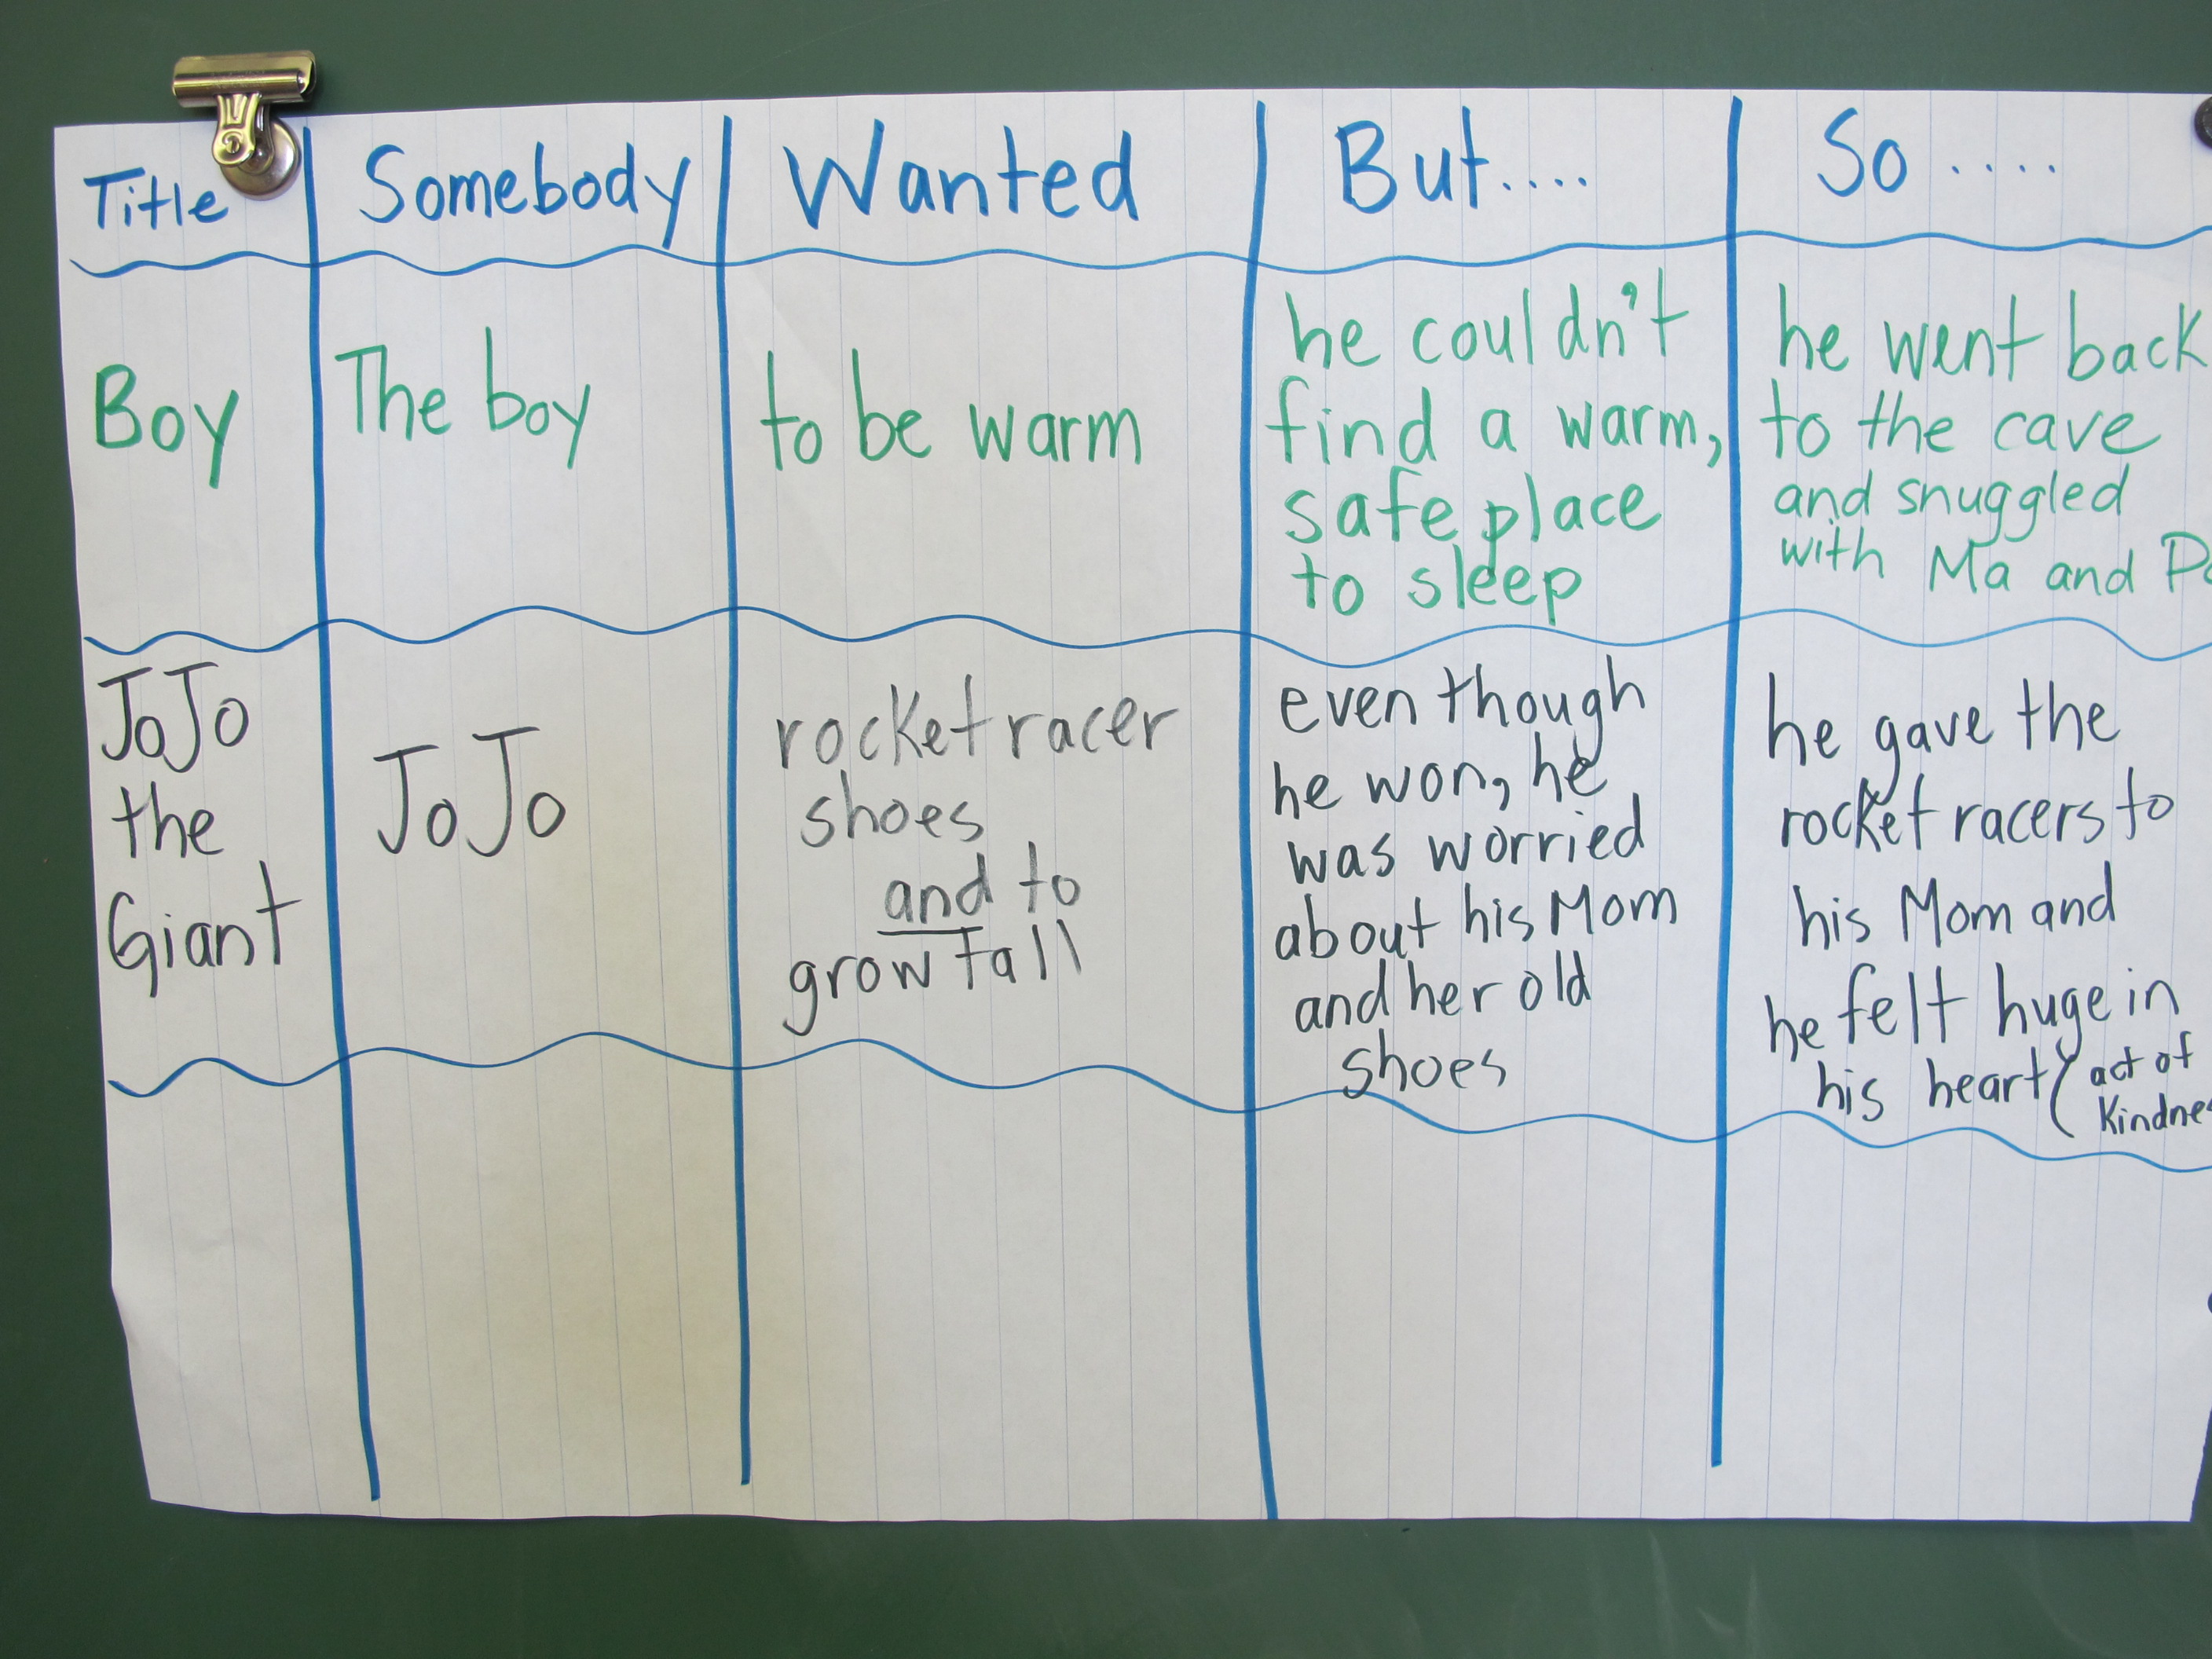 Title
Somebody
Wanted
But....
So .....
Boy
The boy
to be warm
he couldn't
find a warm,
safe place
to sleep
he went back
to the cave
and snuggled
with Ma and
JoJo
the
Giant
JoJo
rocket racer
shoes
and to
grow tall
even though
he won, he
was worried
about his Mom
and her old
shoes
he gave the
rocket racers to
his Mom and
he felt huge in
his heart (act of